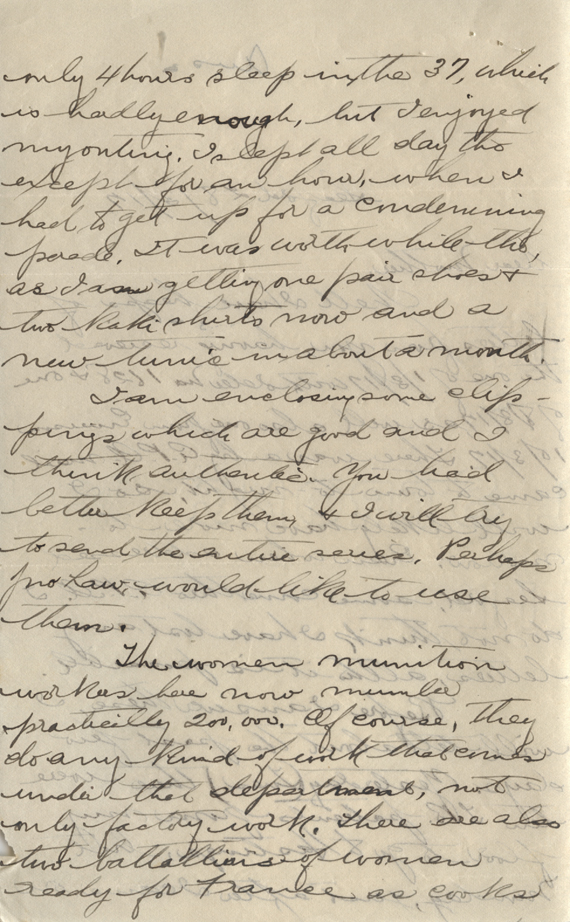 only 4 hours sleep in the 37, which
is hadly enough, but I enjoyed
my outing. I slept all day tho
except for an hour, when I
had to get up for a condemning
parade. It was worth while tho,
as I am getting one pair shoes &
two kaki shirts now and a
new tunic in about a month.
I am enclosing some clip-
pings which are good and I
think authentic. You had
better keep them, & I will try
to send the entire series. Perhaps
would like to use
them.
The women munition
workers here now number
practically 200,000. Of course, they
do any kind of work that comes
under that department, not
only factory work. There are also
two battallions of women
ready for France as cooks